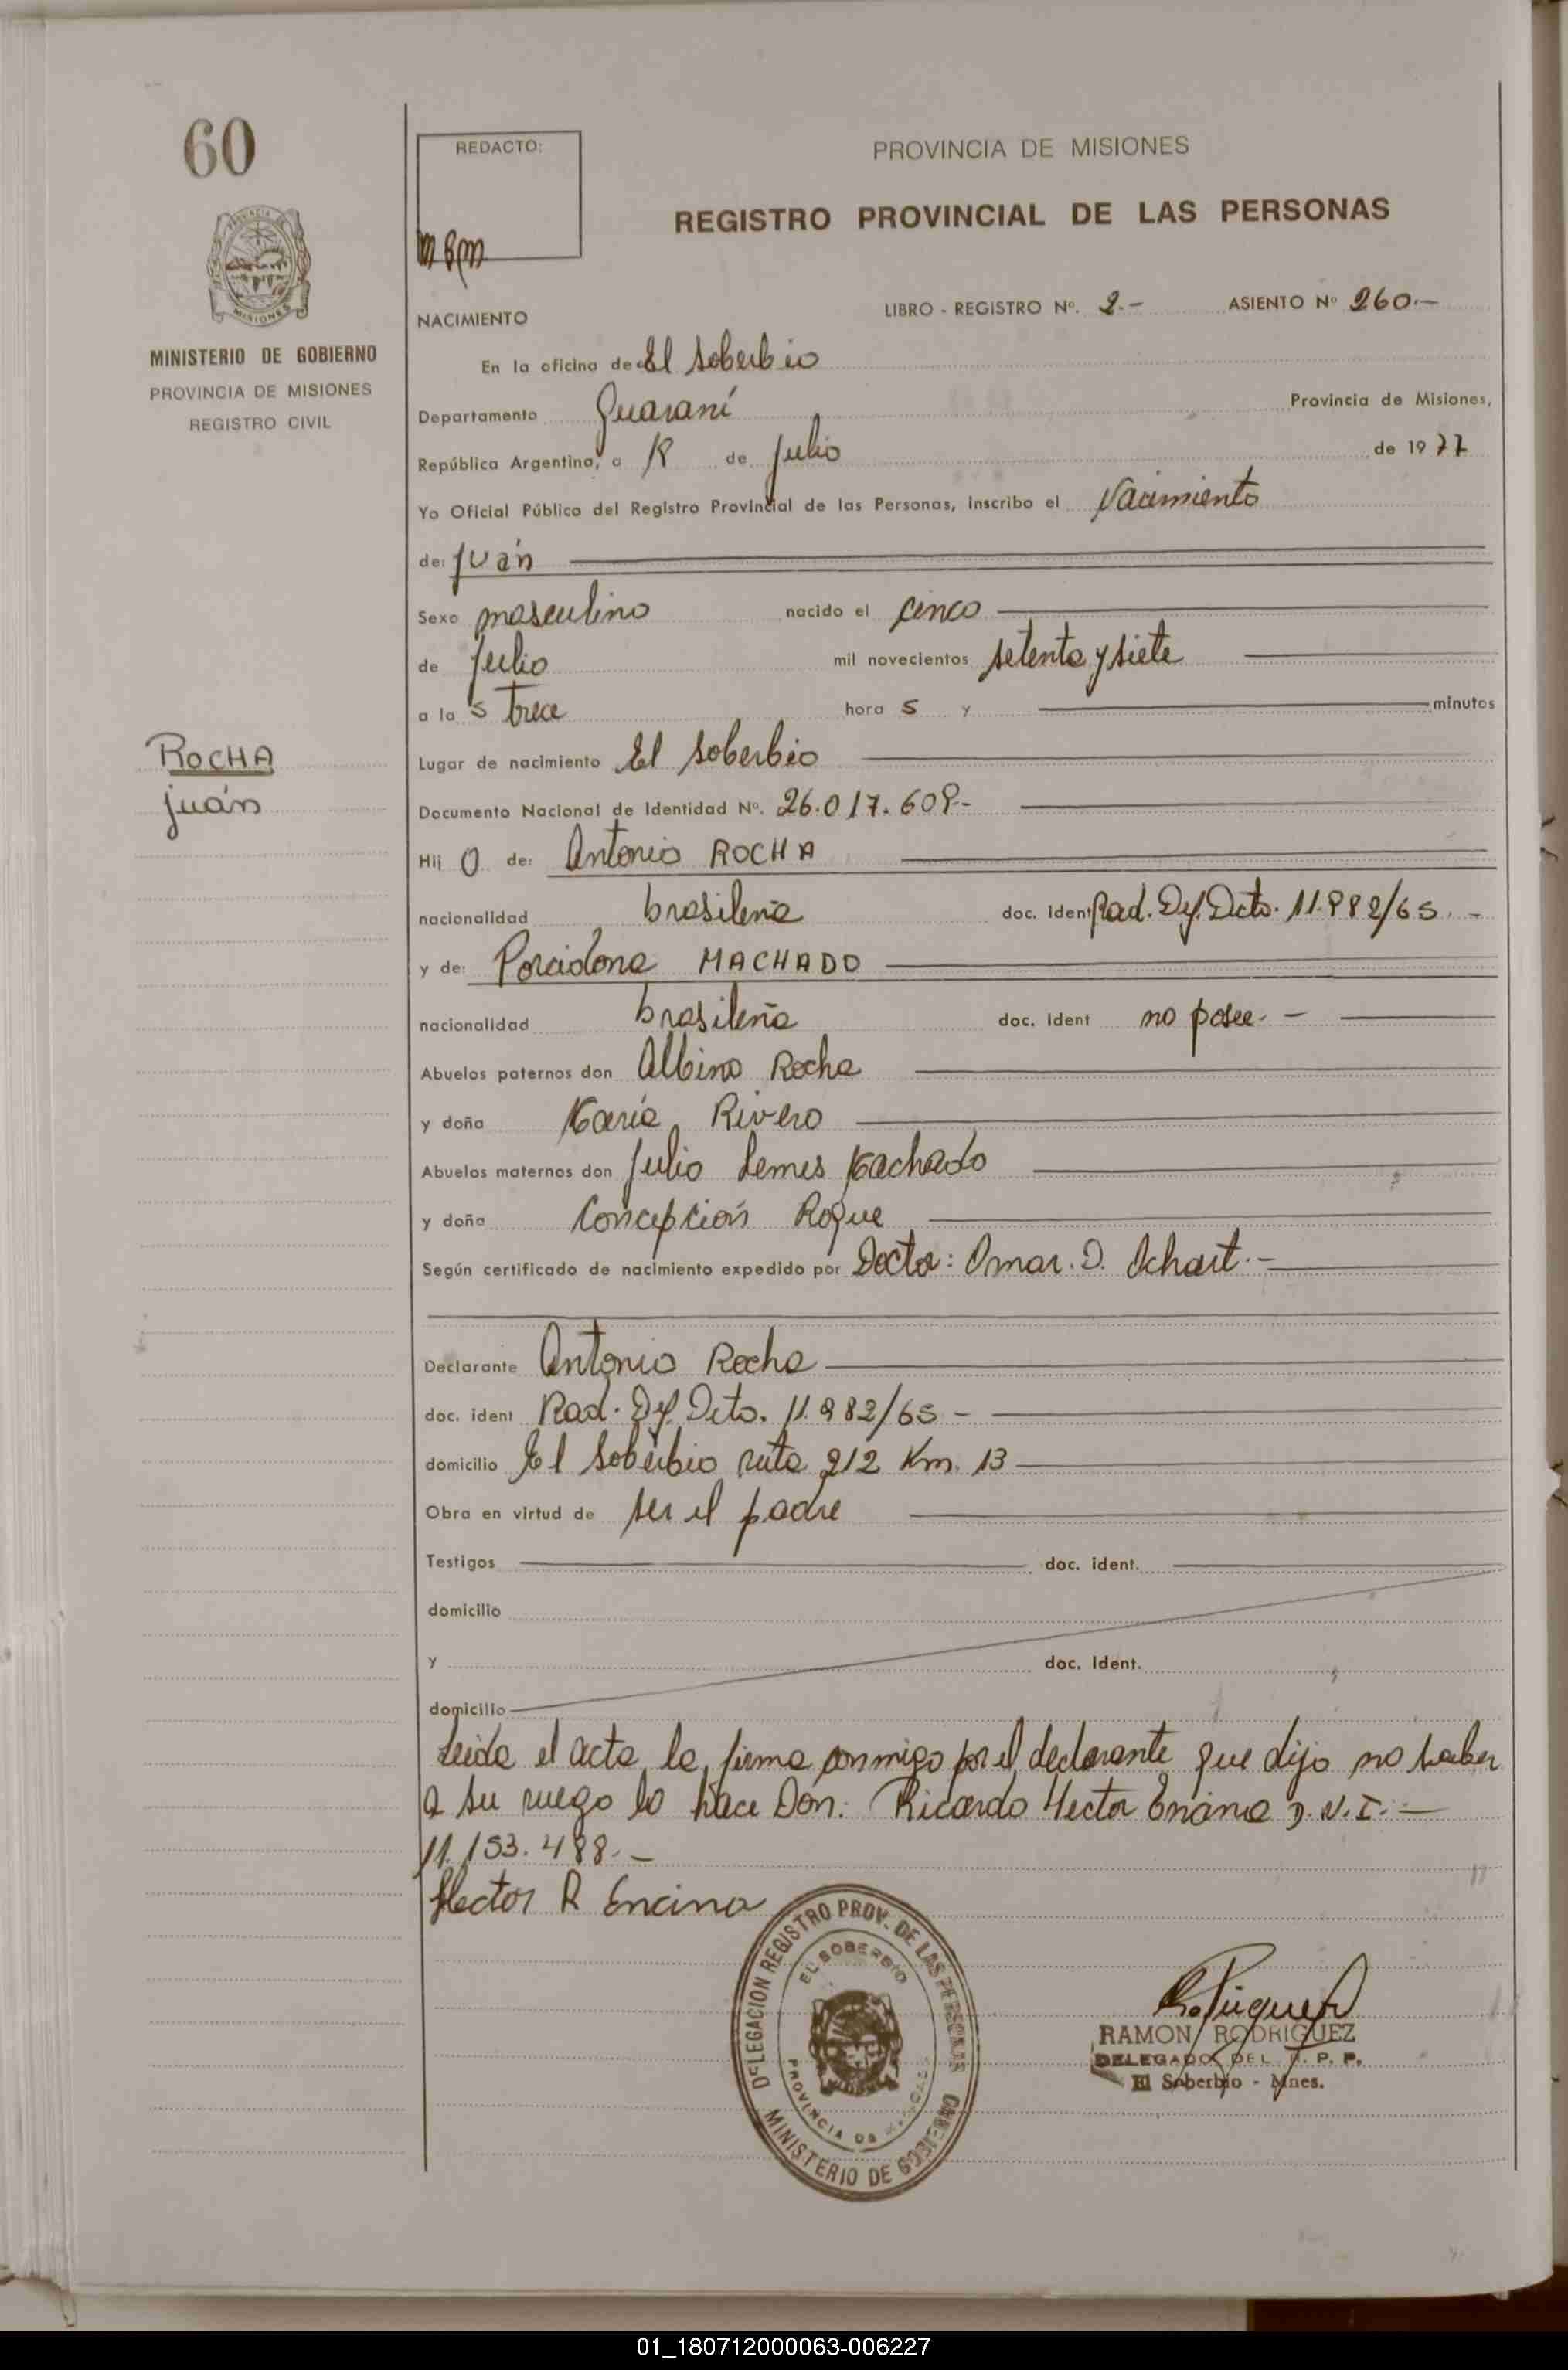 60
REDACTO:
PROVINCIA DE MISIONES
REGISTRO PROVINCIAL DE LAS PERSONAS
MISIONES
MINISTERIO DE GOBIERNO
PROVINCIA DE MISIONES
REGISTRO CIVIL
NACIMIENTO
LIBRO - REGISTRO Nº. 2.- ASIENTO Nº 260.-
En la oficina de El Soberbio
Departamento Guaraní Provincia de Misiones,
República Argentina, a de Julio de 1977
Yo Oficial Público del Registro Provincial de las Personas, inscribo el Nacimiento
de: Juán
Sexo masculino nacido el cinco
de Julio mil novecientos setenta y siete
a la s trece hora s y minutos
ROCHA
Juán
Lugar de nacimiento El Soberbio
Documento Nacional de Identidad Nº. 26.017.609.-
Hij o de: Antonio ROCHA
nacionalidad brasileña doc. Ident Rad. Def. Dcto. 11.982/65.-
y de: Porcidona MACHADO
nacionalidad brasileña doc. Ident no posee.-
Abuelos paternos don Albino Rocha
y doña María Rivero
Abuelos maternos don Julio Lemes Machado
y doña Concepción Roque
Según certificado de nacimiento expedido por Doctor: Omar. D. Ochart.-
Declarante Antonio Rocha
doc. ident Rad. Def. Dcto. 11.982/65 -
domicilio El Soberbio ruta 212 Km. 13
Obra en virtud de ser el padre
Testigos doc. ident.
domicilio
y doc. Ident.
domicilio
Leida el acta, la firma conmigo por el declarante que dijo no saber
a su ruego lo hace Don: Ricardo Hector Encina D.N.I.-
11.153.488.-
Hector R Encina
DELEGACION REGISTRO PROV. DE LAS PERSONAS
EL SOBERBIO
PROVINCIA DE MISIONES
MINISTERIO DE GOBIERNO
RAMON RODRIGUEZ
DELEGADO DEL R. P. P.
El Soberbio - Mnes.
01_180712000063-006227